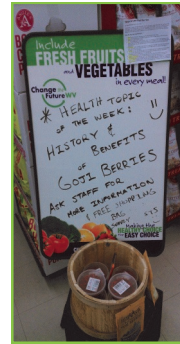 Include
FRESH FRUITS
and VEGETABLES
in every meal!
Change the
Future WV
* HEALTH TOPIC
OF THE WEEK:
HISTORY &
BENEFITS
OF
GOJI BERRIES
ASK STAFF FOR
MORE INFORMATION
& FREE SHOPPING
BAG
Making the
HEALTHY CHOICE
the EASY CHOICE